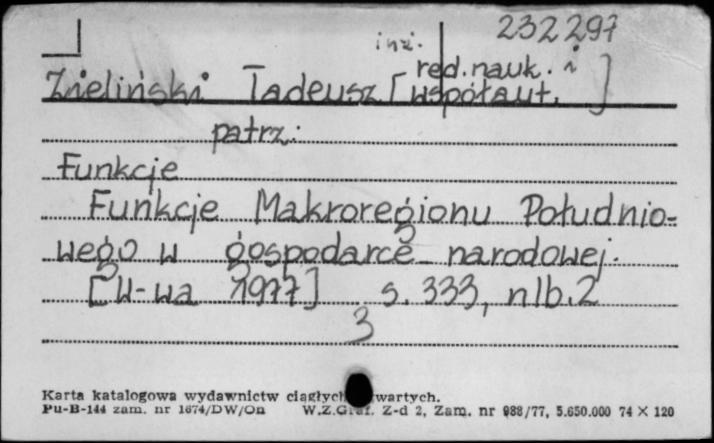 232297
inż.
red. nauk. i
Zieliński Tadeusz [współaut.]
patrz:
Funkcje
Funkcje Makroregionu Południo=
wego w gospodarce narodowej.
[W-wa 1977] s. 333, nlb. 2
3
Karta katalogowa wydawnictw ciągłych
Pu-B-144 zam. nr 1674/DW/On W.Z.Graf. Z-d 2, Zam. nr 988/77, 5.650.000 74 X 120